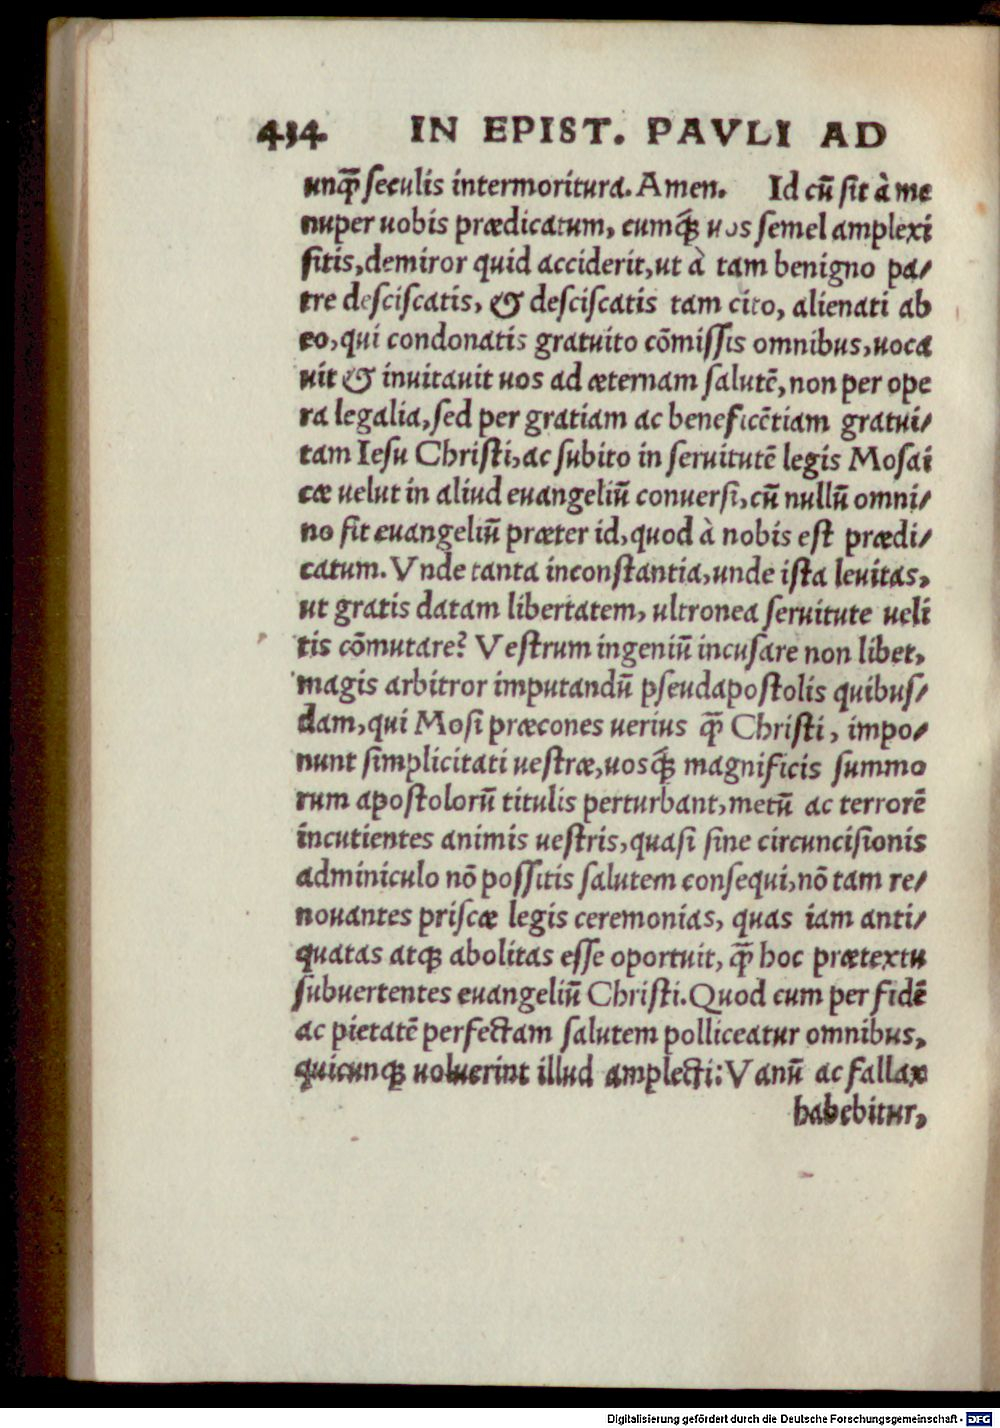 434 IN EPIST. PAVLI AD
unq̃ seculis intermoritura. Amen. Id cũ sit à me
nuper uobis prædicatum, cumq́ꝫ uos semel amplexi
sitis, demiror quid acciderit, ut à tam benigno pa/
tre desciscatis, & desciscatis tam cito, alienati ab
eo, qui condonatis gratuito cõmissis omnibus, uoca
uit & inuitauit uos ad æternam salutẽ, non per ope
ra legalia, sed per gratiam ac beneficẽtiam gratui/
tam Iesu Christi, ac subito in seruitutẽ legis Mosai
cæ uelut in aliud euangeliũ conuersi, cũ nullũ omni/
no sit euangeliũ præter id, quod à nobis est prædi/
catum. Vnde tanta inconstantia, unde ista leuitas,
ut gratis datam libertatem, ultronea seruitute ueli
tis cõmutare? Vestrum ingeniũ incusare non libet,
magis arbitror imputandũ pseudapostolis quibus/
dam, qui Mosi præcones uerius q̃ Christi, impo/
nunt simplicitati uestræ, uosq́ꝫ magnificis summo
rum apostolorũ titulis perturbant, metũ ac terrorẽ
incutientes animis uestris, quasi sine circuncisionis
adminiculo nõ possitis salutem consequi, nõ tam re/
nouantes priscæ legis ceremonias, quas iam anti/
quatas atqꝫ abolitas esse oportuit, q̃ hoc prætextu
subuertentes euangeliũ Christi. Quod cum per fidẽ
ac pietatẽ perfectam salutem polliceatur omnibus,
quicunqꝫ uoluerint illud amplecti: Vanũ ac fallax
habebitur,
Digitalisierung gefördert durch die Deutsche Forschungsgemeinschaft - DFG